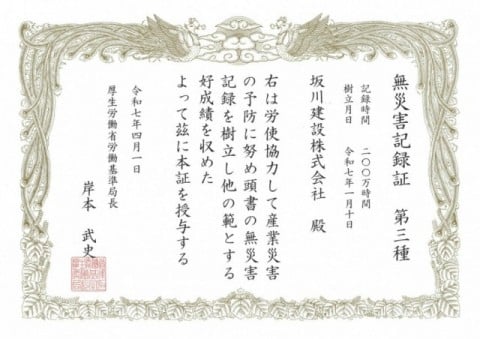 無災害記録証　第三種
記録時間　二〇〇万時間
樹立月日　令和七年一月十日
坂川建設株式会社　殿
右は労使協力して産業災害
の予防に努め頭書の無災害
記録を樹立し他の範とする
好成績を収めた
よって茲に本証を授与する
令和七年四月一日
厚生労働省労働基準局長
岸本　武史